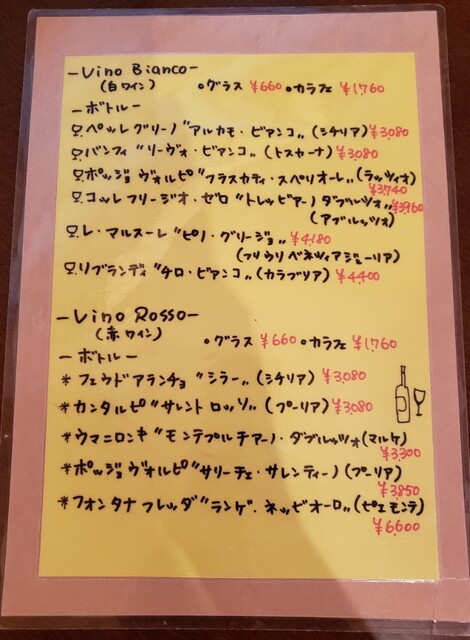 -Vino Bianco-
(白ワイン) ●グラス ¥660 ●カラフェ ¥1,760
-ボトル-
ペッレグリーノ "アルカモ・ビアンコ" (シチリア) ¥3,080
バンフィ "リーヴォ・ビアンコ" (トスカーナ) ¥3,080
ポッジョ ヴォルピ "フラスカティ・スペリオーレ" (ラッツィオ)
¥3,740
コッレフリージオ・ゼロ "トレッビアーノ ダブルッツォ" ¥3,960
(アブルッツォ)
レ・マルスーレ "ピノ・グリージョ" ¥4,180
(フリウリ ベネツィアジューリア)
リブランディ "チロ・ビアンコ" (カラブリア) ¥4,400
-Vino Rosso-
(赤ワイン) ●グラス ¥660 ●カラフェ ¥1,760
-ボトル-
*フェウドアランチョ "シラー" (シチリア) ¥3,080
*カンタルピ "サレント ロッソ" (プーリア) ¥3,080
*ウマニロンキ "モンテプルチアーノ・ダブルッツォ" (マルケ)
¥3,300
*ポッジョ ヴォルピ "サリーチェ・サレンティーノ" (プーリア)
¥3,850
*フォンタナフレッダ "ランゲ・ネッビオーロ" (ピエモンテ)
¥6,600